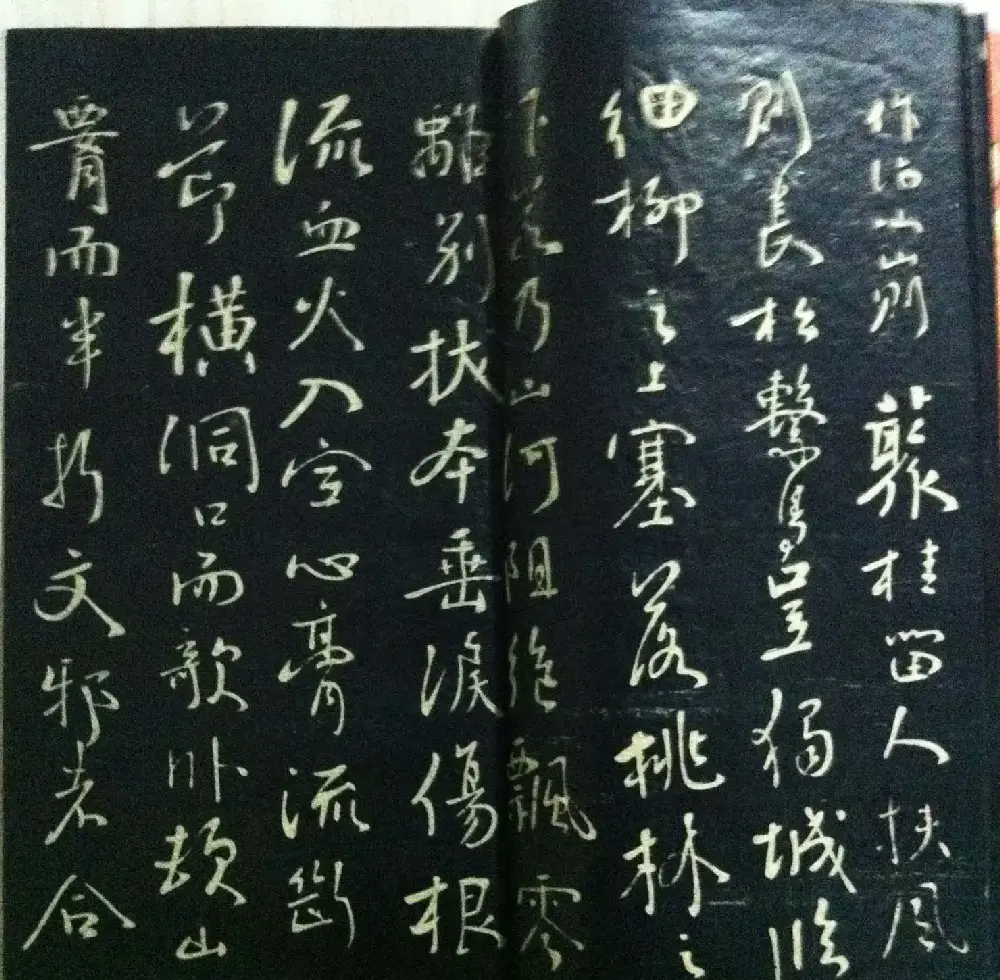 作冶小山則藂桂留人扶風
則長松繫馬豈獨城臨
細柳之上塞落桃林之
下若乃山河阻絕飄零
離別拔本垂淚傷根
流血火入空心膏流斷
節橫洞口而欹卧頓山
腰而半折文邪者合